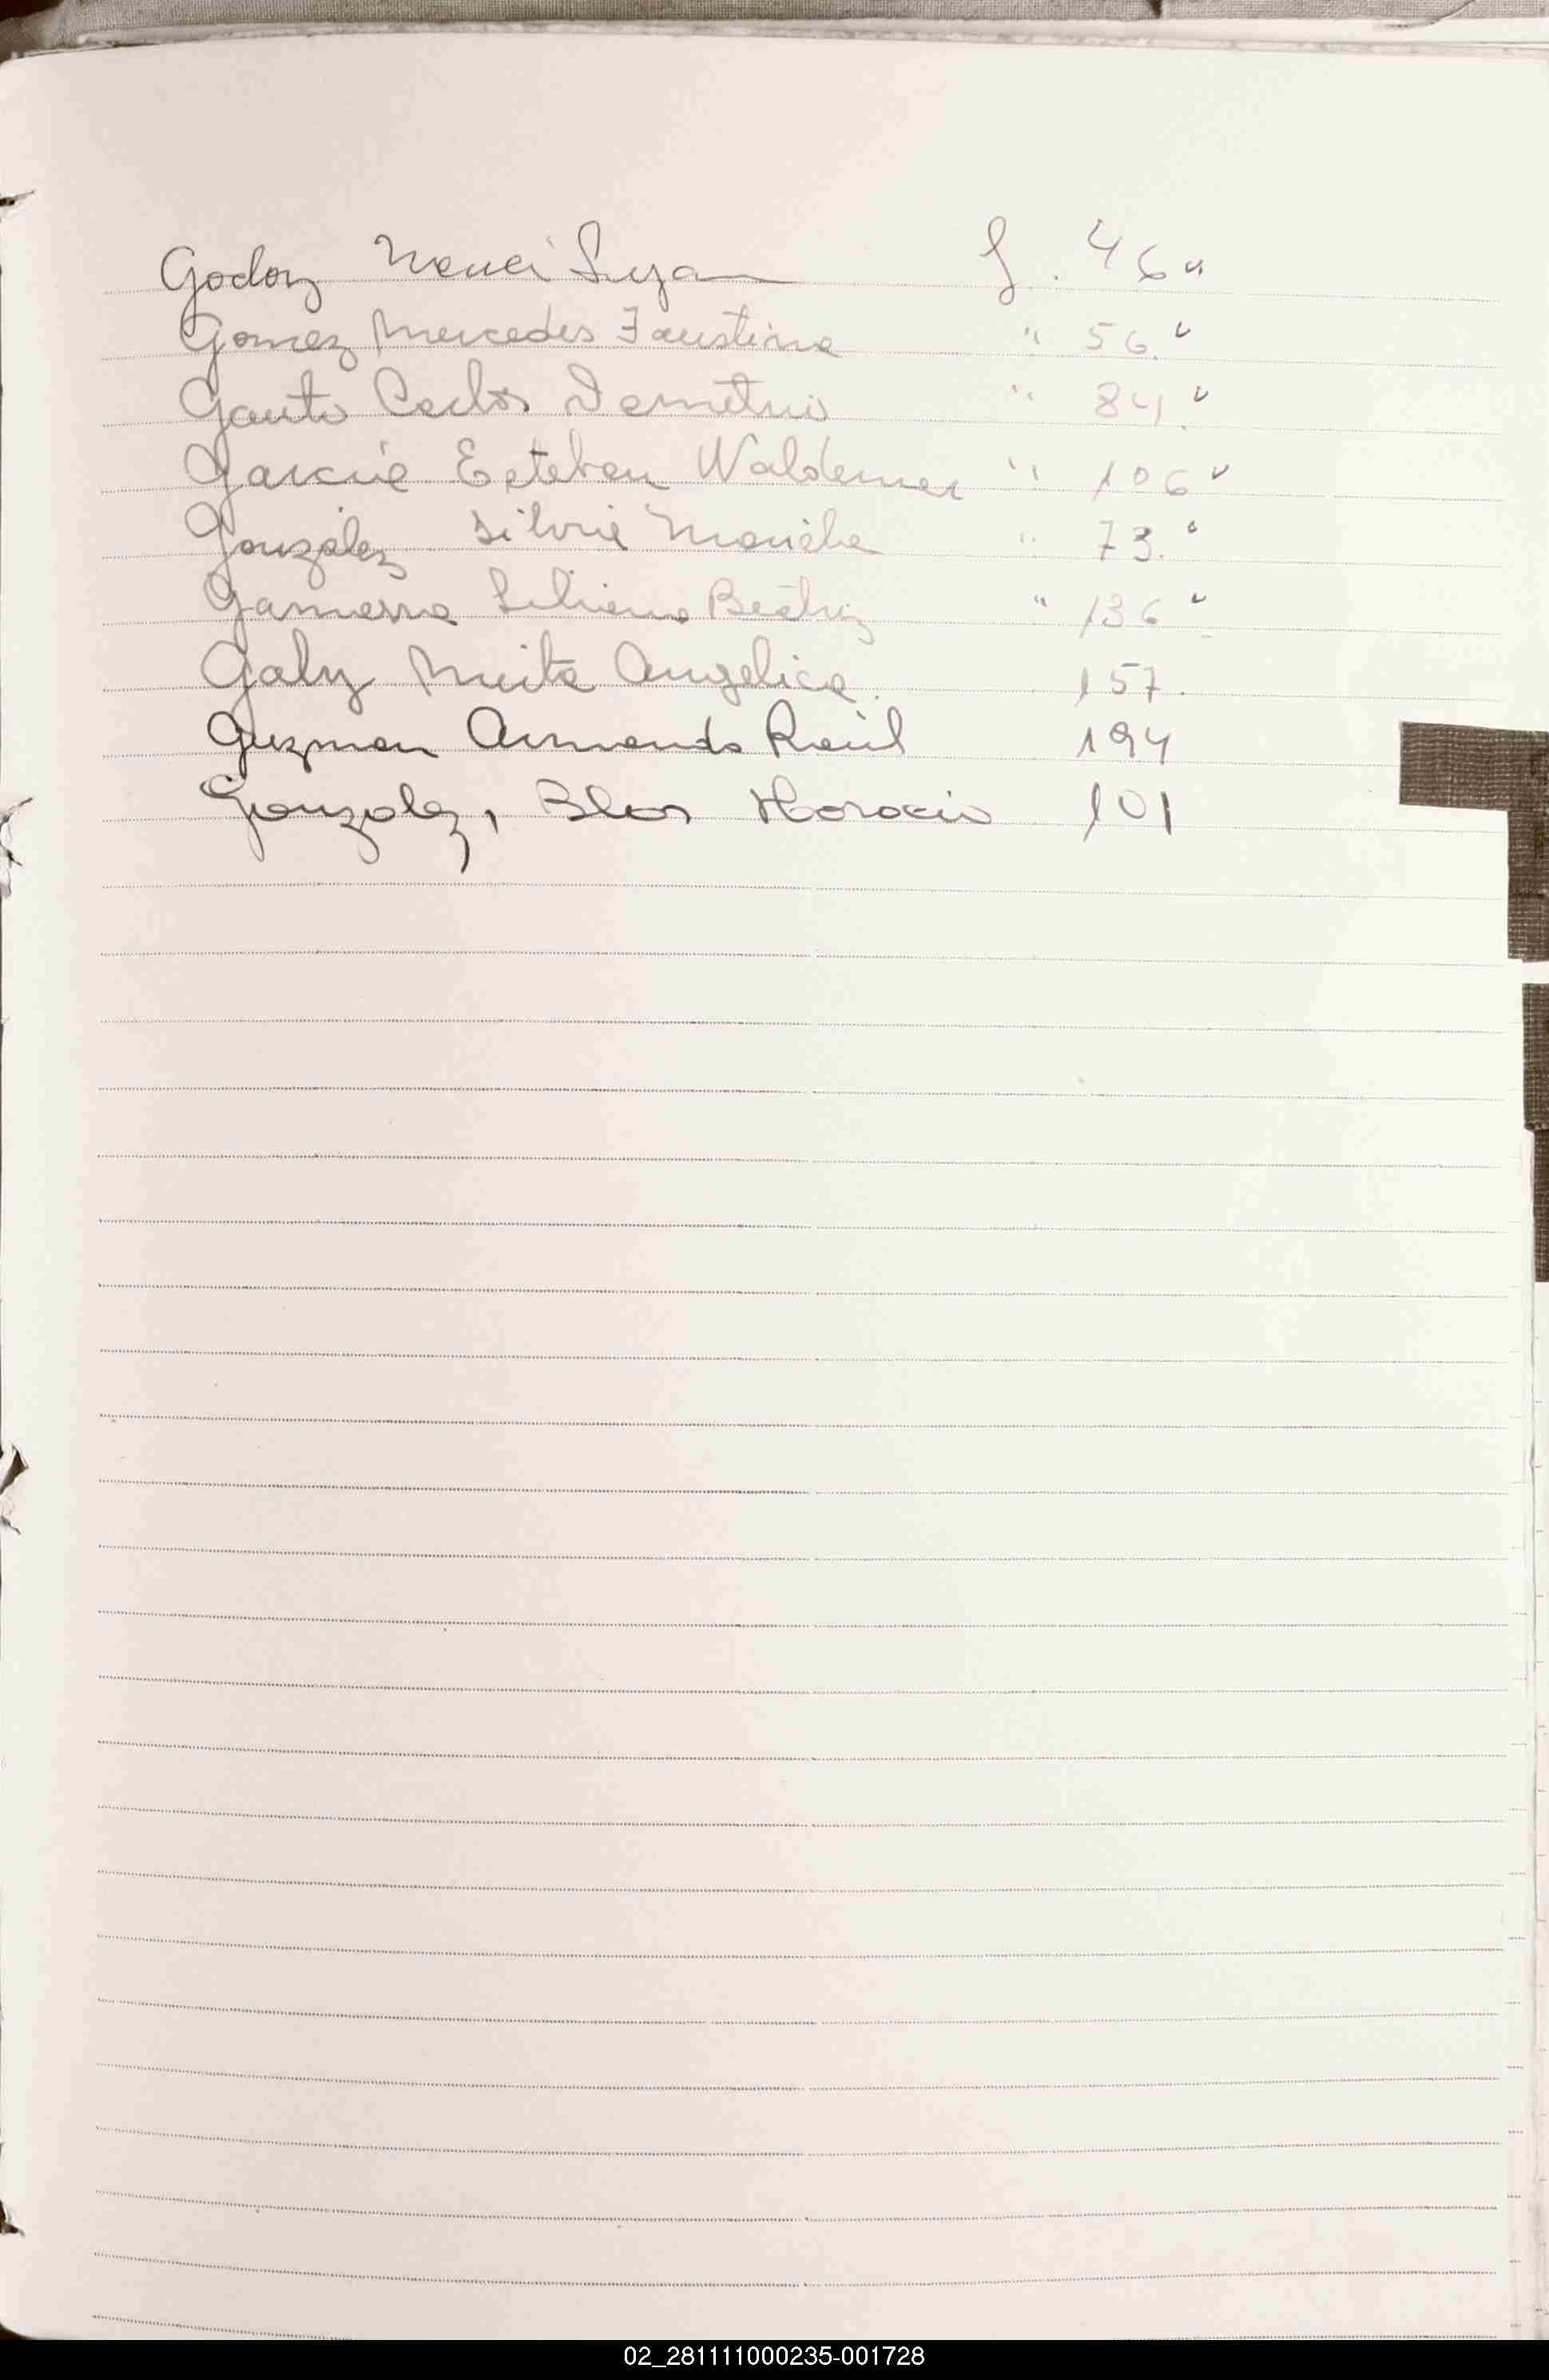 Godoy Nanci Suzan f. 46 "
Gomez Mercedes Faustina " 56. "
Gauto Carlos Demetrio " 84. "
García Esteban Waldemar " 106 "
González Silvia Mariela " 73. "
Gamarra Liliana Beatriz " 136 "
Galy Mirta Angelica. 157.
Guzman Armando Raúl 194
Gonzalez, Blas Horacio 101
02_281111000235-001728